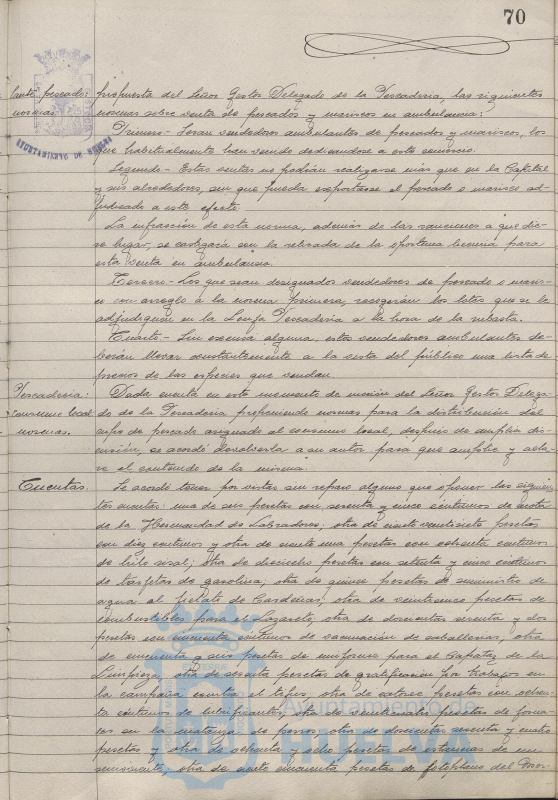 70
AYUNTAMIENTO DE HUELVA
normas.
propuesta del Señor Gestor Delegado de la Pescadería, las siguientes
normas sobre venta de pescados y mariscos en ambulancia:
Primero - Seran vendedores ambulantes de pescados y mariscos, los
que habitualmente han venido dedicandose a este comercio.
Segundo - Estas ventas no podrán realizarse más que en la Capital
y sus alrededores, sin que pueda exportarse el pescado o marisco ad-
judicado a este efecto.
La infracción de esta norma, además de las sanciones a que die-
re lugar, se castigará con la retirada de la oportuna licencia para
esta venta en ambulancia.
Tercero - Los que sean designados vendedores de pescado o maris-
co con arreglo a la norma primera, recogerán los lotes que se le
adjudiquen en la Lonja Pescadería a la hora de la subasta.
Cuarto - Sin excusa alguna, estos vendedores ambulantes de-
berán llevar constantemente a la vista del público una lista de
precios de las especies que vendan.
Pescadería:
consumo local
normas.
Dada cuenta en este momento de moción del Señor Gestor Delega-
do de la Pescadería proponiendo normas para la distribución del
cupo de pescado asignado al consumo local, después de amplia dis-
cusión, se acordó devolverla a su autor para que amplíe y acla-
re el contenido de la misma.
Cuentas.
Se acordó tener por vistas sin reparo alguno que oponer las siguien-
tes cuentas: una de seis pesetas con setenta y cinco centimos de cuota
de la Hermandad de Labradores; otra de ciento veintisiete pesetas
con diez centimos y otra de ciento una pesetas con ochenta centimos
de hilo sisal; otra de dieciocho pesetas con setenta y cinco centimos
de tarjetas de gasolina; otra de quince pesetas de suministro de
agua al fielato de Cardeñas; otra de veinticinco pesetas de
combustibles para el Lazareto; otra de doscientas sesenta y dos
pesetas con cincuenta centimos de vacunación de caballerías; otra
de cincuenta y seis pesetas de uniforme para el Capataz de la
Limpieza; otra de sesenta pesetas de gratificación por trabajos en
la campaña contra el tifus; otra de catorce pesetas con ochen-
ta centimos de lubrificantes; otra de veinticuatro pesetas de jorna-
les en la matanza de perros; otra de doscientas sesenta y cuatro
pesetas y otra de ochenta y ocho pesetas de estancias de un
; otra de ciento cincuenta pesetas de fotoplano del
Ayuntamiento de
HUELVA